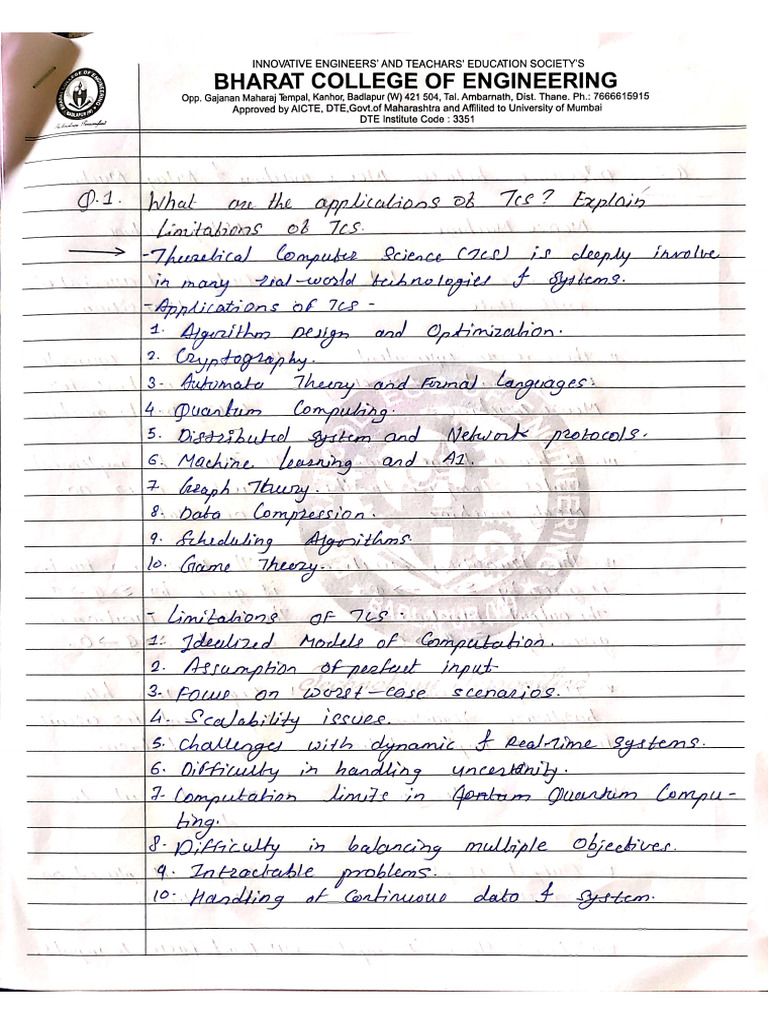 INNOVATIVE ENGINEERS' AND TEACHARS' EDUCATION SOCIETY'S
BHARAT COLLEGE OF ENGINEERING
Opp. Gajanan Maharaj Tempal, Kanhor, Badlapur (W) 421 504, Tal. Ambarnath, Dist. Thane. Ph.: 7666615915
Approved by AICTE, DTE,Govt.of Maharashtra and Affilited to University of Mumbai
DTE Institute Code : 3351
Q.1. What are the applications of TCS? Explain
limitations of TCS.
→ - Theoretical Computer Science (TCS) is deeply involve
in many real-world technologies & systems.
- Applications of TCS -
1. Algorithm Design and Optimization.
2. Cryptography.
3. Automata Theory and Formal Languages.
4. Quantum Computing.
5. Distributed system and Network protocols.
6. Machine learning and AI.
7. Graph Theory.
8. Data Compression.
9. Scheduling Algorithms.
10. Game Theory.
- Limitations OF TCS.
1. Idealized Models of Computation.
2. Assumption of perfect input
3. Focus on worst-case scenarios.
4. Scalability issues.
5. Challenges with dynamic & Real-Time systems.
6. Difficulty in handling uncertainity.
7. Computation limits in Quantum Compu-
ting.
8. Difficulty in balancing multiple Objectives.
9. Intractable problems.
10. Handling of Continuous data & system.